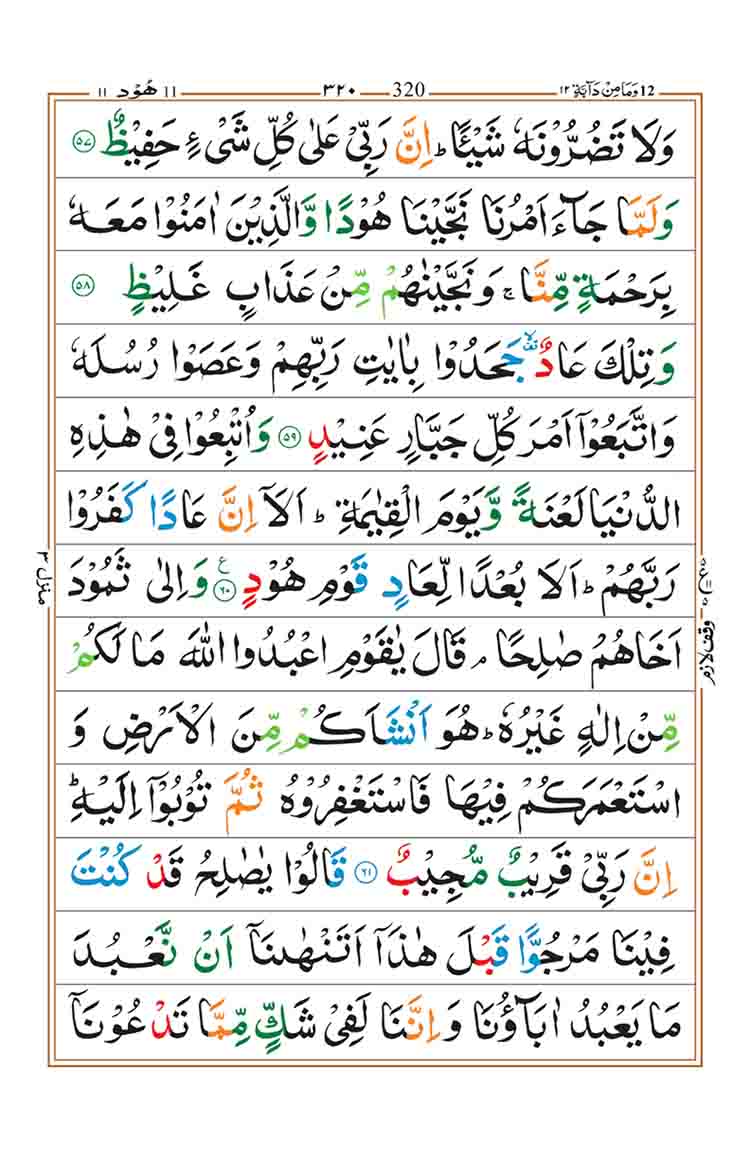 12 وَمَا مِنْ دَآبَّةٍ ١٢ 320 ٣٢٠ 11 هُوْد ١١
وَلَا تَضُرُّوْنَهٗ شَيْـًٔا ؕ اِنَّ رَبِّىْ عَلٰى كُلِّ شَىْءٍ حَفِيْظٌ ۝٥٧
وَلَمَّا جَآءَ اَمْرُنَا نَجَّيْنَا هُوْدًا وَّالَّذِيْنَ اٰمَنُوْا مَعَهٗ
بِرَحْمَةٍ مِّنَّا ۚ وَنَجَّيْنٰهُمْ مِّنْ عَذَابٍ غَلِيْظٍ ۝٥٨
وَتِلْكَ عَادٌ ۙ جَحَدُوْا بِاٰيٰتِ رَبِّهِمْ وَعَصَوْا رُسُلَهٗ
وَاتَّبَعُوْۤا اَمْرَ كُلِّ جَبَّارٍ عَنِيْدٍ ۝٥٩ وَاُتْبِعُوْا فِىْ هٰذِهِ
الدُّنْيَا لَعْنَةً وَّيَوْمَ الْقِيٰمَةِ ؕ اَلَاۤ اِنَّ عَادًا كَفَرُوْا
رَبَّهُمْ ؕ اَلَا بُعْدًا لِّعَادٍ قَوْمِ هُوْدٍ ۝٦٠ ع وَاِلٰى ثَمُوْدَ
اَخَاهُمْ صٰلِحًا ۘ قَالَ يٰقَوْمِ اعْبُدُوا اللّٰهَ مَا لَكُمْ
مِّنْ اِلٰهٍ غَيْرُهٗ ؕ هُوَ اَنْشَاَكُمْ مِّنَ الْاَرْضِ وَ
اسْتَعْمَرَكُمْ فِيْهَا فَاسْتَغْفِرُوْهُ ثُمَّ تُوْبُوْۤا اِلَيْهِ ؕ
اِنَّ رَبِّىْ قَرِيْبٌ مُّجِيْبٌ ۝٦١ قَالُوْا يٰصٰلِحُ قَدْ كُنْتَ
فِيْنَا مَرْجُوًّا قَبْلَ هٰذَاۤ اَتَنْهٰىنَاۤ اَنْ نَّعْبُدَ
مَا يَعْبُدُ اٰبَآؤُنَا وَاِنَّنَا لَفِىْ شَكٍّ مِّمَّا تَدْعُوْنَاۤ
وقف لازم
منزل ٣